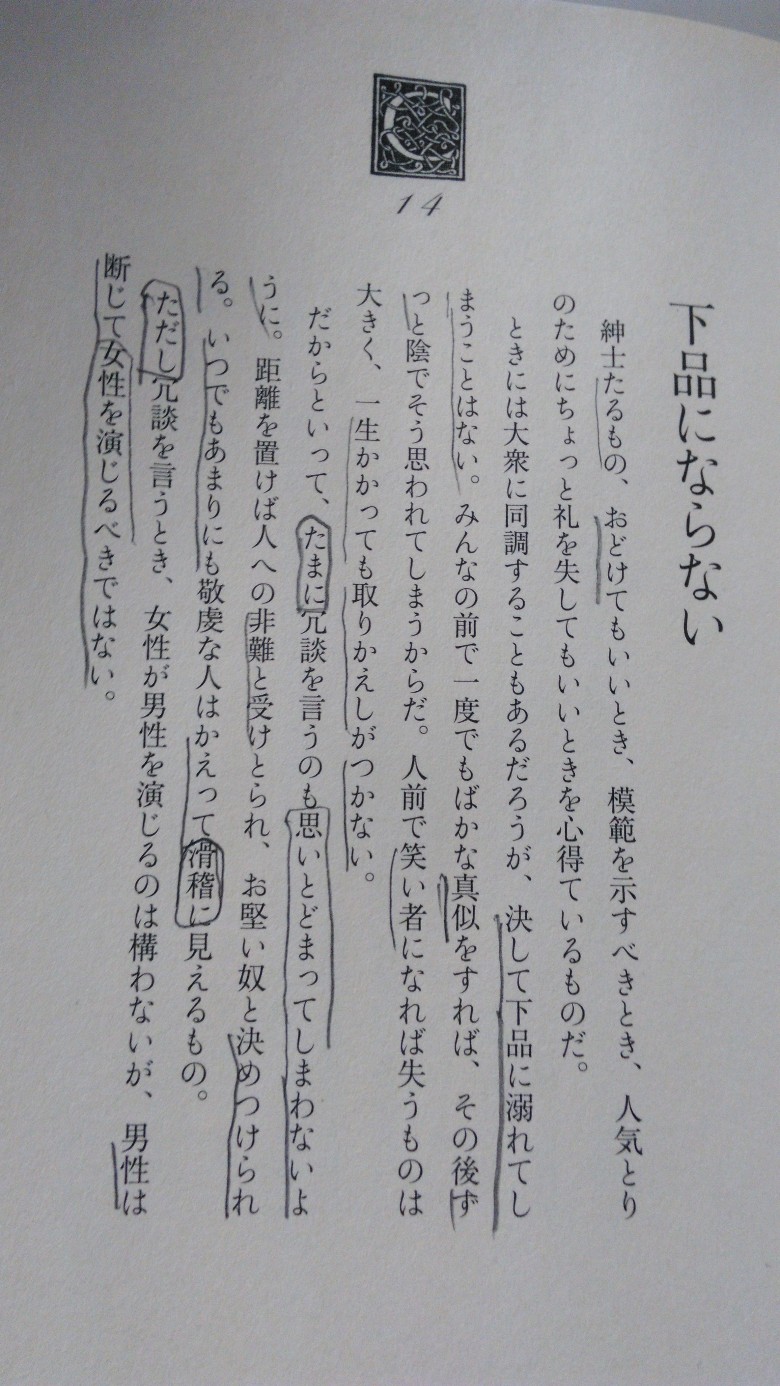 14
下品にならない
紳士たるもの、おどけてもいいとき、模範を示すべきとき、人気とり
のためにちょっと礼を失してもいいときを心得ているものだ。
ときには大衆に同調することもあるだろうが、決して下品に溺れてし
まうことはない。みんなの前で一度でもばかな真似をすれば、その後ず
っと陰でそう思われてしまうからだ。人前で笑い者になれば失うものは
大きく、一生かかっても取りかえしがつかない。
だからといって、たまに冗談を言うのも思いとどまってしまわないよ
うに。距離を置けば人への非難と受けとられ、お堅い奴と決めつけられ
る。いつでもあまりにも敬虔な人はかえって滑稽に見えるもの。
ただし冗談を言うとき、女性が男性を演じるのは構わないが、男性は
断じて女性を演じるべきではない。